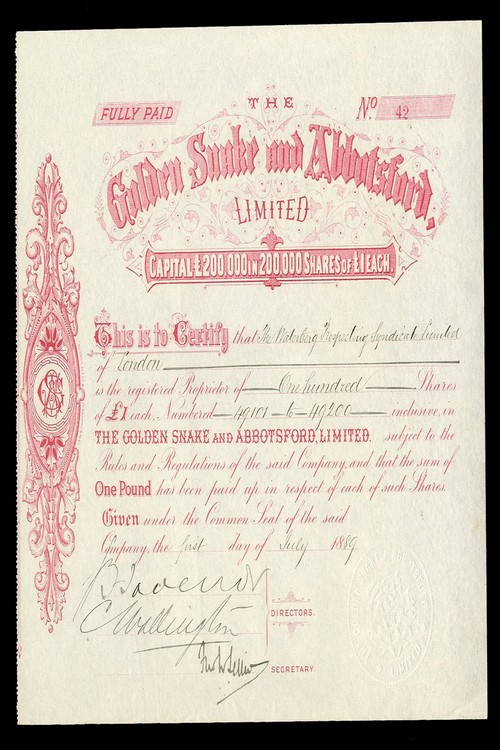 THE
FULLY PAID
No. 42
Golden Snake and Abbotsford,
LIMITED
CAPITAL £200,000 IN 200,000 SHARES OF £1 EACH.
This is to Certify that The Waterberg Prospecting Syndicate Limited
of London
is the registered Proprietor of One hundred Shares
of £1 each, Numbered 49101 to 49200 inclusive, in
THE GOLDEN SNAKE AND ABBOTSFORD, LIMITED. subject to the
Rules and Regulations of the said Company, and that the sum of
One Pound has been paid up in respect of each of such Shares.
Given under the Common Seal of the said
Company, the first day of July 1889
C Wallington
DIRECTORS.
SECRETARY.